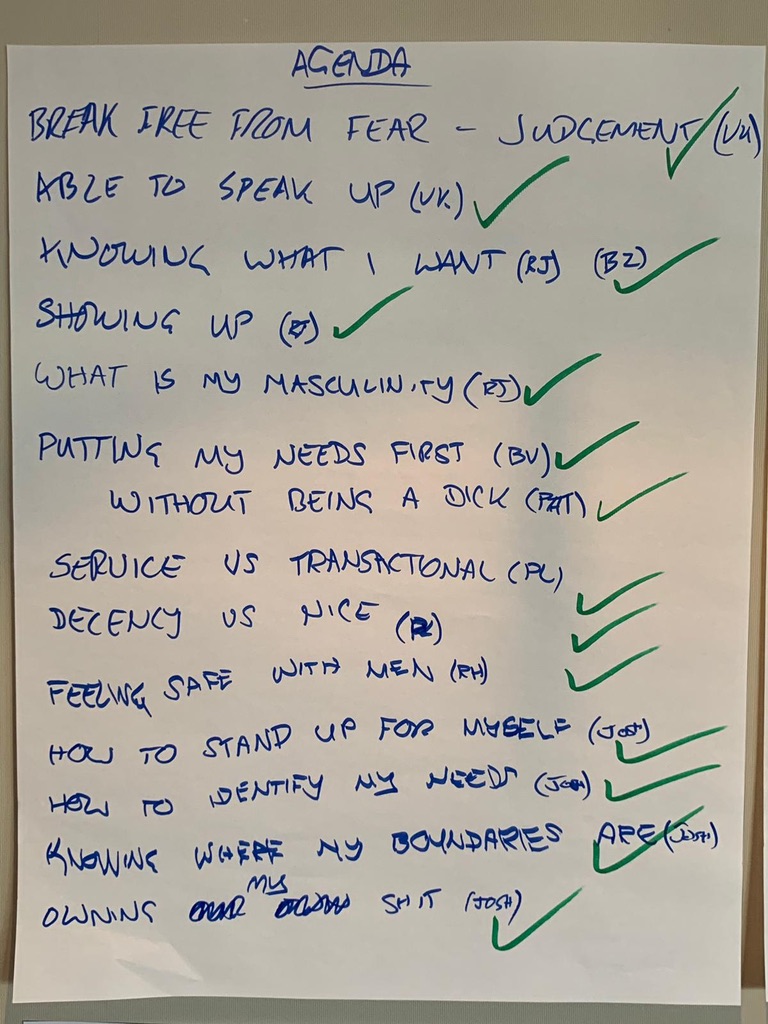 AGENDA
BREAK FREE FROM FEAR - JUDGEMENT (VK)
ABLE TO SPEAK UP (VK)
KNOWING WHAT I WANT (RJ) (BZ)
SHOWING UP (RJ)
WHAT IS MY MASCULINITY (RJ)
PUTTING MY NEEDS FIRST (BV)
WITHOUT BEING A DICK (PAT)
SERVICE VS TRANSACTIONAL (PL)
DECENCY VS NICE
FEELING SAFE WITH MEN (RH)
HOW TO STAND UP FOR MYSELF (JOSH)
HOW TO IDENTIFY MY NEEDS (JOSH)
KNOWING WHERE MY BOUNDARIES ARE (JOSH)
OWNING MY SHIT (JOSH)